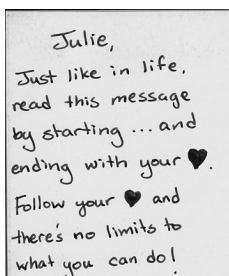 Julie,
Just like in life,
read this message
by starting ... and
ending with your ♥.
Follow your ♥ and
there's no limits to
what you can do!